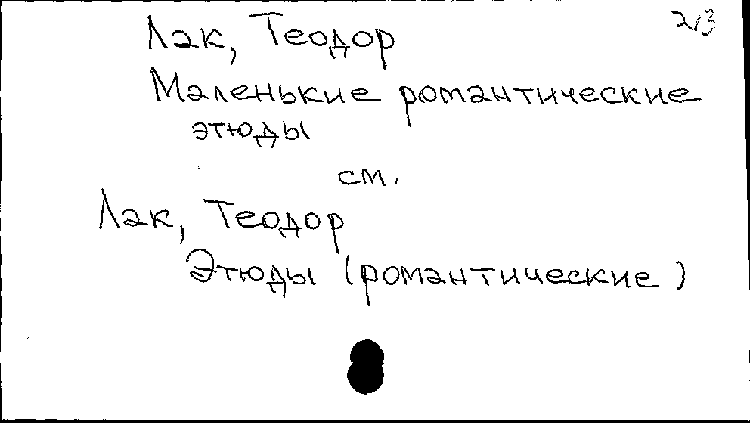 Лак, Теодор
Маленькие романтические
этюды
см.
Лак, Теодор
Этюды (романтические)